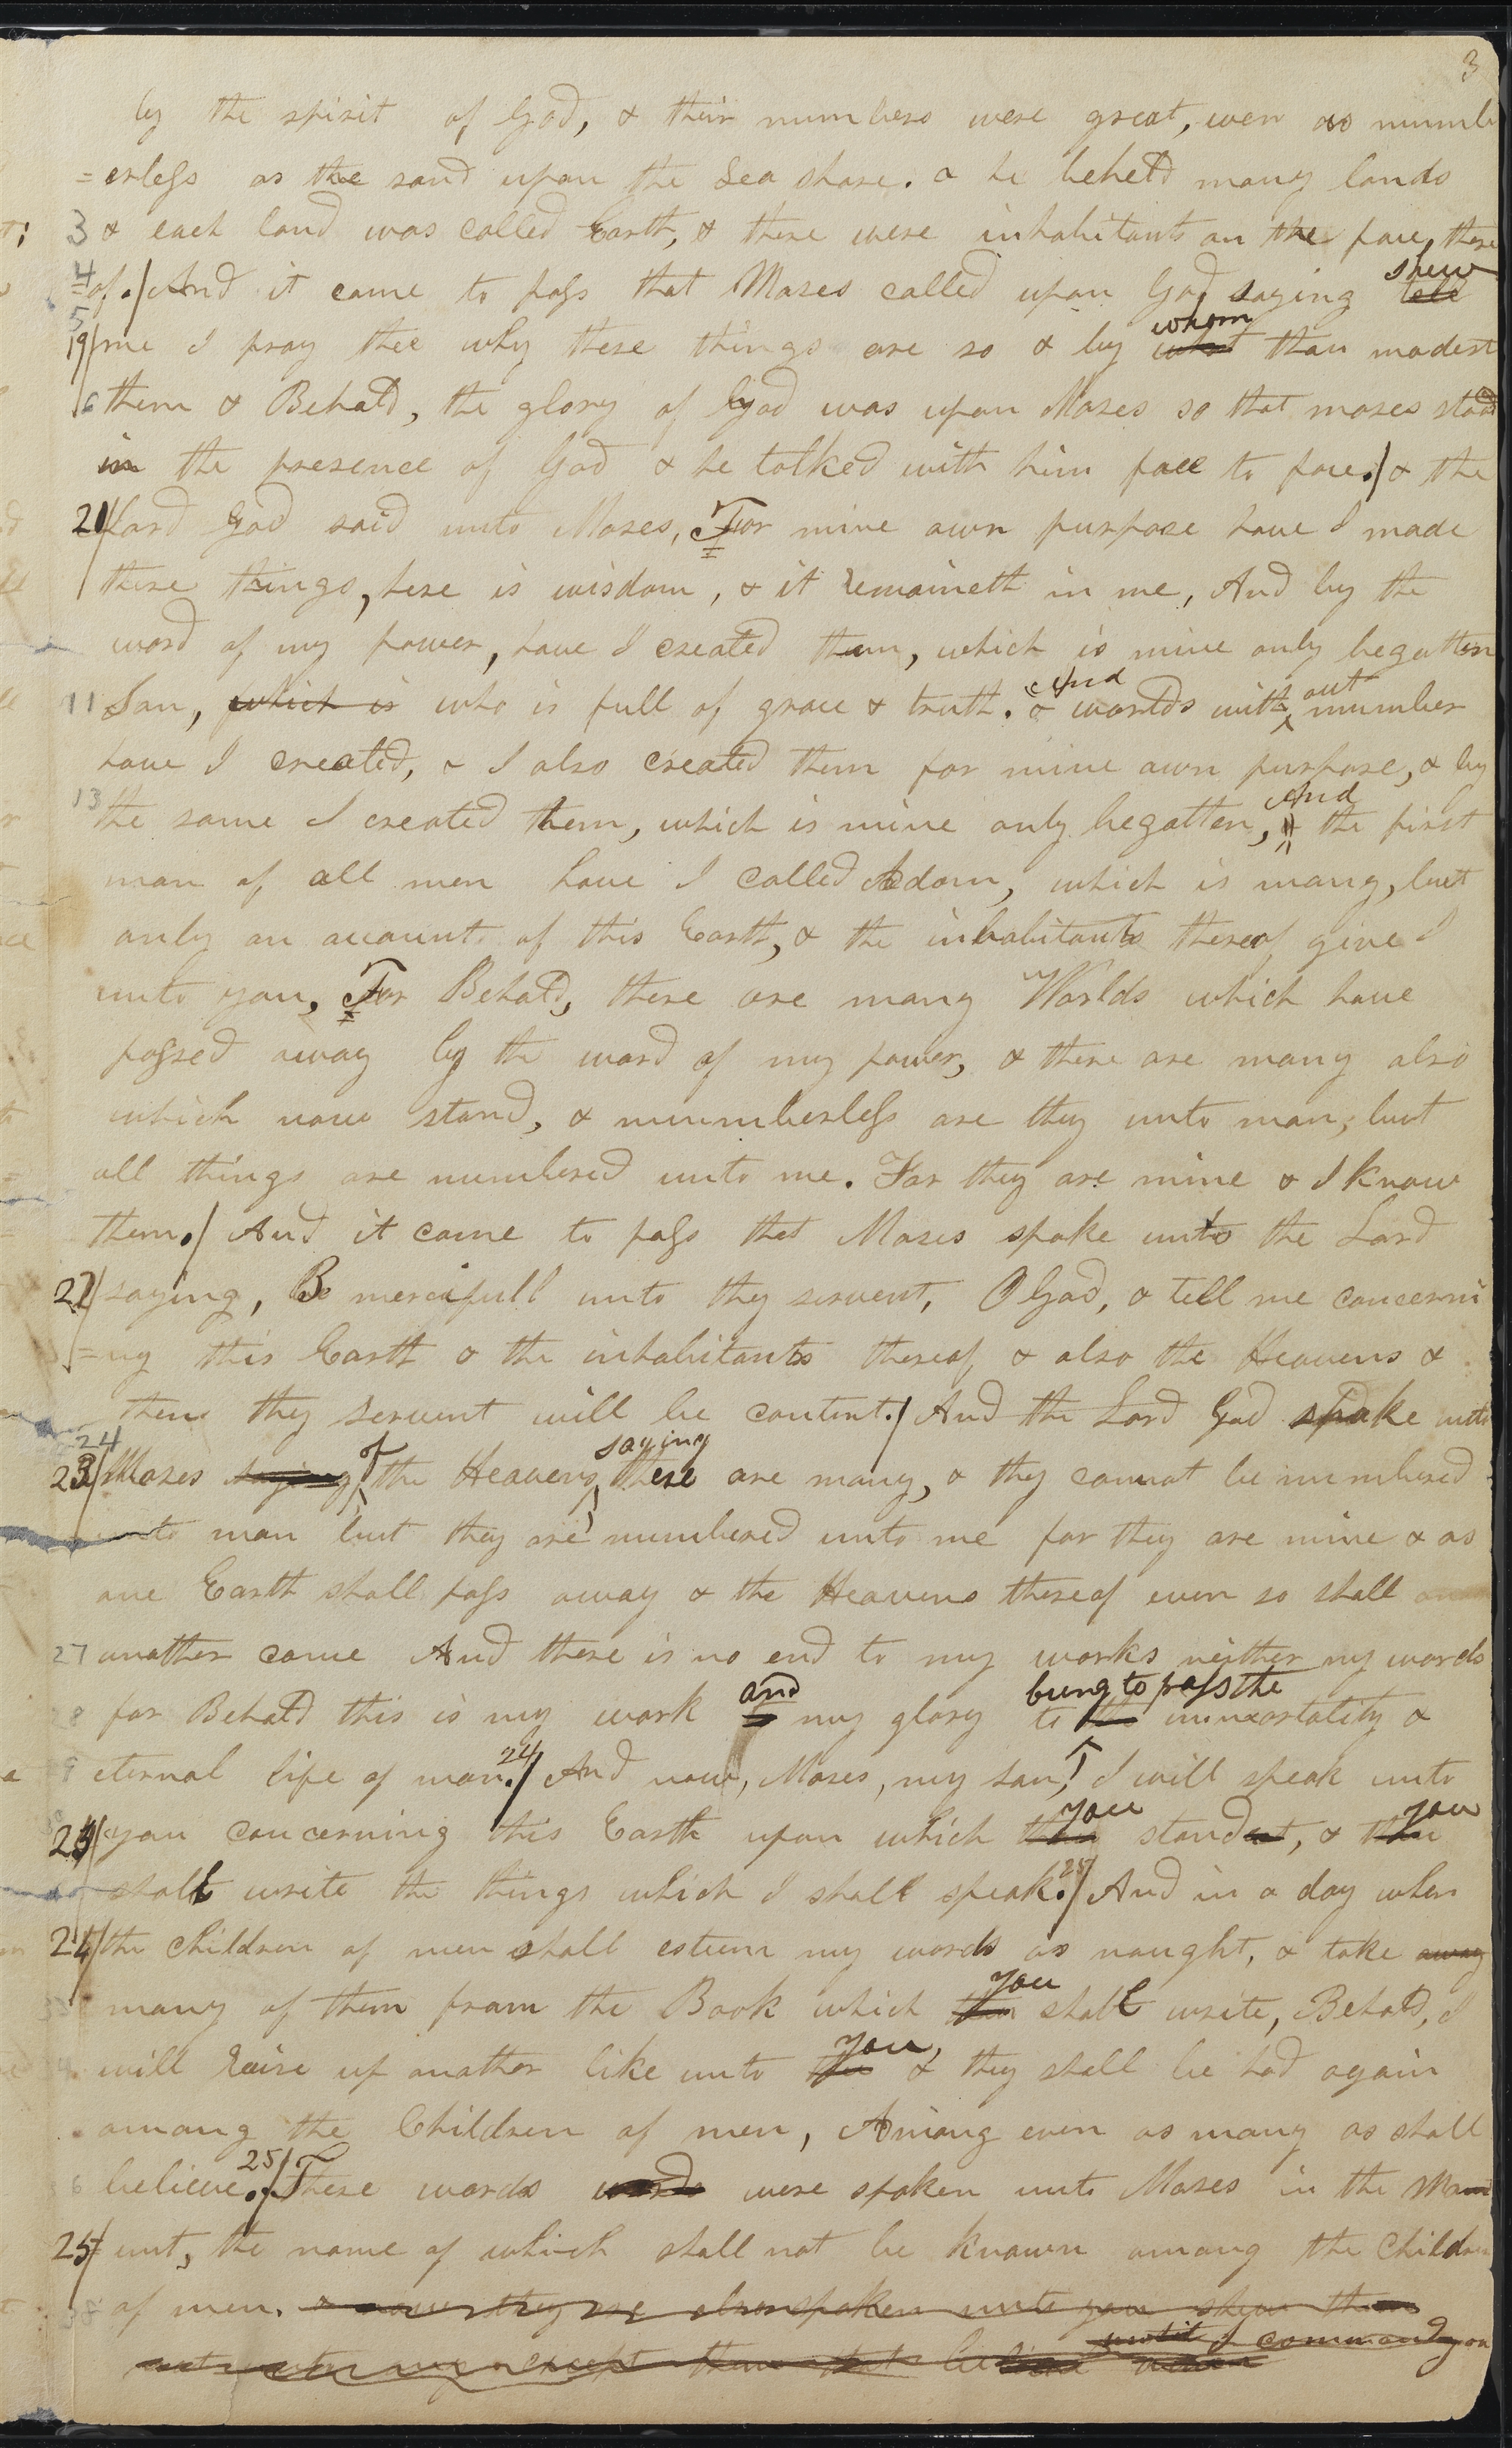 3
by the spirit of God, & their numbers were great, even as numb
=erless as the sand upon the Sea shore. & he beheld many lands
3 & each land was called Earth, & there were inhabitants on the face, there
4 of./ And it came to pass that Moses called upon God saying tell shew
5 19/ me I pray thee why these things are so & by what whom thou madest
6 them & Behold, the glory of God was upon Moses so that moses stood
in the presence of God & he talked with him face to face./ & the
20/ Lord God said unto Moses, For mine own purpose have I made
these things, here is wisdom, & it remaineth in me, And by the
word of my power, have I created them, which is mine only begotten
11 Son, which is who is full of grace & truth. & And worlds with out number
have I created, & I also created them for mine own purpose, & by
13 the same I created them, which is mine only begotten, & And the first
man of all men have I called Adam, which is many, but
only an account of this Earth, & the inhabitants thereof give I
unto you, For Behold, there are many Worlds which have
passed away by the word of my power, & there are many also
which now stand, & numberless are they unto man, but
all things are numbered unto me. For they are mine & I know
them./ And it came to pass that Moses spoke unto the Lord
22/ saying, Be mercifull unto thy servent, O God, & tell me concerni
=ng this Earth & the inhabitants thereof & also the Heavens &
then thy Servent will be content./ And the Lord God spake unto
24 23/ Moses saying of the Heavens, saying these are many, & they cannot be numbered
unto man but they are numbered unto me for they are mine & as
one Earth shall pass away & the Heavens thereof even so shall
27 another come And there is no end to my works neither my words
for Behold this is my work & and my glory to the bring to pass the immortality &
eternal life of man. 24/ And now, Moses, my son, I will speak unto
you concerning this Earth upon which thou you standest, & thou you
shalt write the things which I shall speak. 25/ And in a day when
24/ the Children of men shall esteem my words as naught, & take away
many of them from the Book which thou you shall write, Behold, I
will raise up another like unto thee you, & they shall be had again
among the Children of men, Among even as many as shall
believe. 25/ These words words were spoken unto Moses in the Mo
25/ unt, the name of which shall not be known among the Children
of men. & now they are also spoken unto you shew them
not unto any except them that believe until I command you